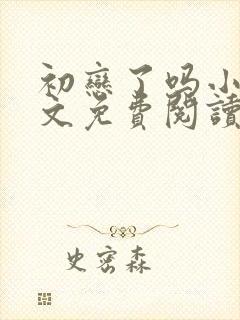 初戀了吗小
文免費閱讀
史密森